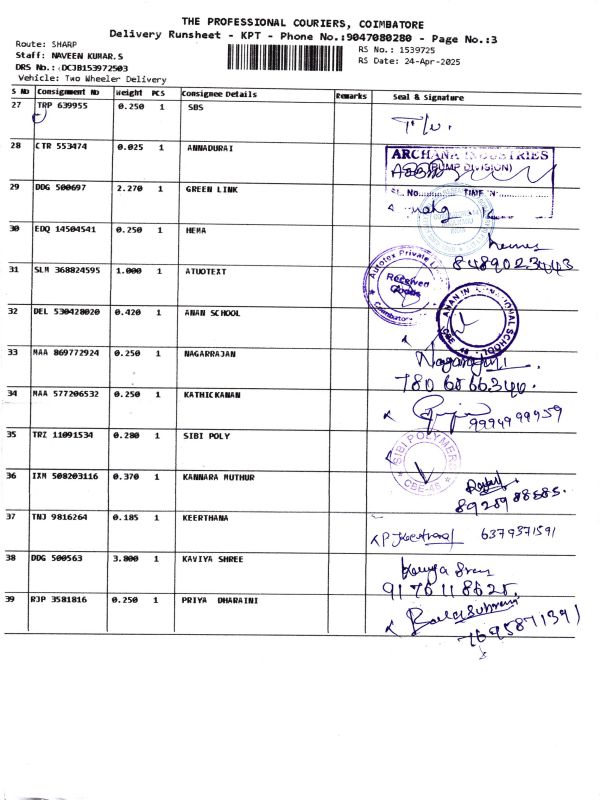 THE PROFESSIONAL COURIERS, COIMBATORE
Delivery Runsheet - KPT - Phone No.:9047080280 - Page No.:3
Route: SHARP
RS No.: 1539725
Staff: NAVEEN KUMAR.S
RS Date: 24-Apr-2025
DRS No.:DCJB153972503
Vehicle: Two Wheeler Delivery
S No Consignment No Weight PCS Consignee Details Remarks Seal & Signature
27 TRP 639955 0.250 1 SBS
28 CTR 553474 0.025 1 ANNADURAI
ARCHANA INDUSTRIES
(PUMP DIVISION)
29 DDG 500697 2.270 1 GREEN LINK
SL. No. TIME IN:
30 EDQ 14504541 0.250 1 HEMA
8489023443
31 SLM 368824595 1.000 1 ATUOTEXT
Autotex Private
Received
Goods
Coimbatore
32 DEL 530428020 0.420 1 ANAN SCHOOL
ANAN INTERNATIONAL SCHOOL
CBE - 48
33 MAA 869772924 0.250 1 NAGARRAJAN
34 MAA 577206532 0.250 1 KATHICKANAN
9994999959
35 TRZ 11091534 0.280 1 SIBI POLY
SIBI POLYMERS
CBE-48
36 IXM 508203116 0.370 1 KANNARA MUTHUR
37 TNJ 9816264 0.185 1 KEERTHANA
6379371591
38 DDG 500563 3.800 1 KAVIYA SHREE
39 RJP 3581816 0.250 1 PRIYA DHARAINI